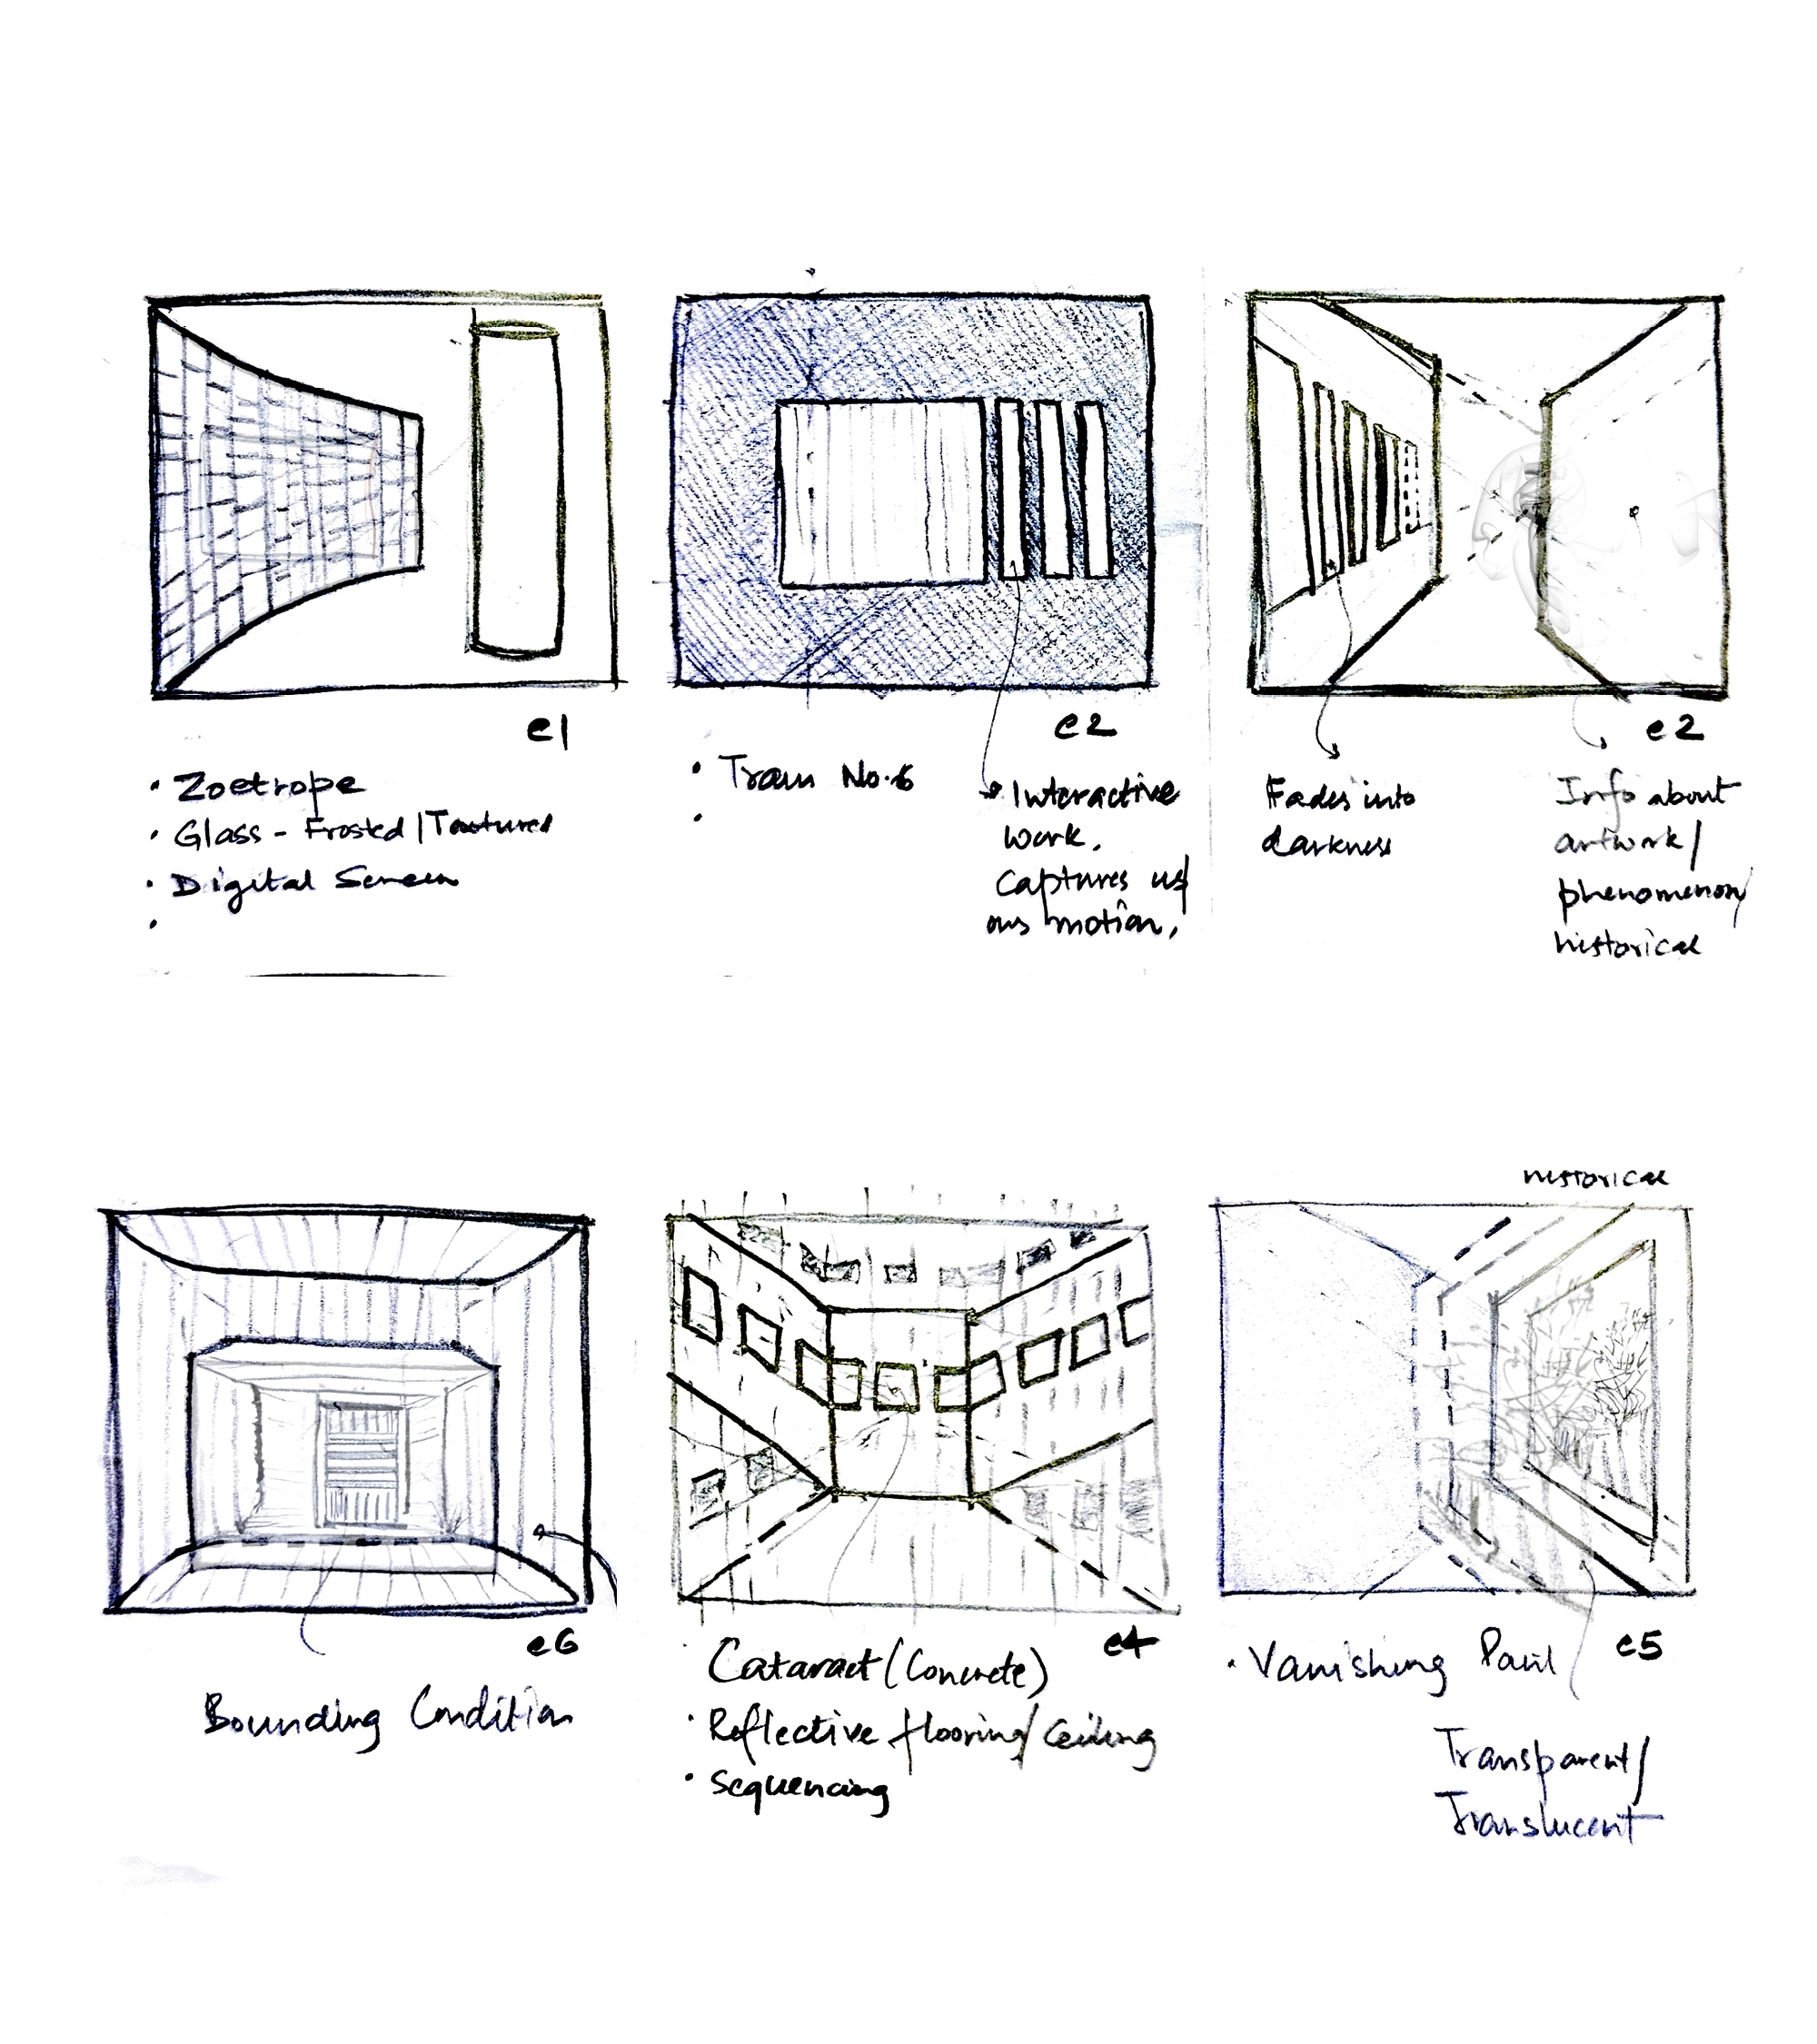 e1
• Zoetrope
• Glass - Frosted / Textured
• Digital Screen
•
e2
• Tram No. 6
•
Interactive
work.
Captures us/
our motion.
e2
Fades into
darkness
Info about
artwork/
phenomenon/
historical
e6
Bounding Condition
e4
• Cataract (Concrete)
• Reflective flooring/Ceiling
• Sequencing
historical
e5
• Vanishing
Transparent/
Translucent